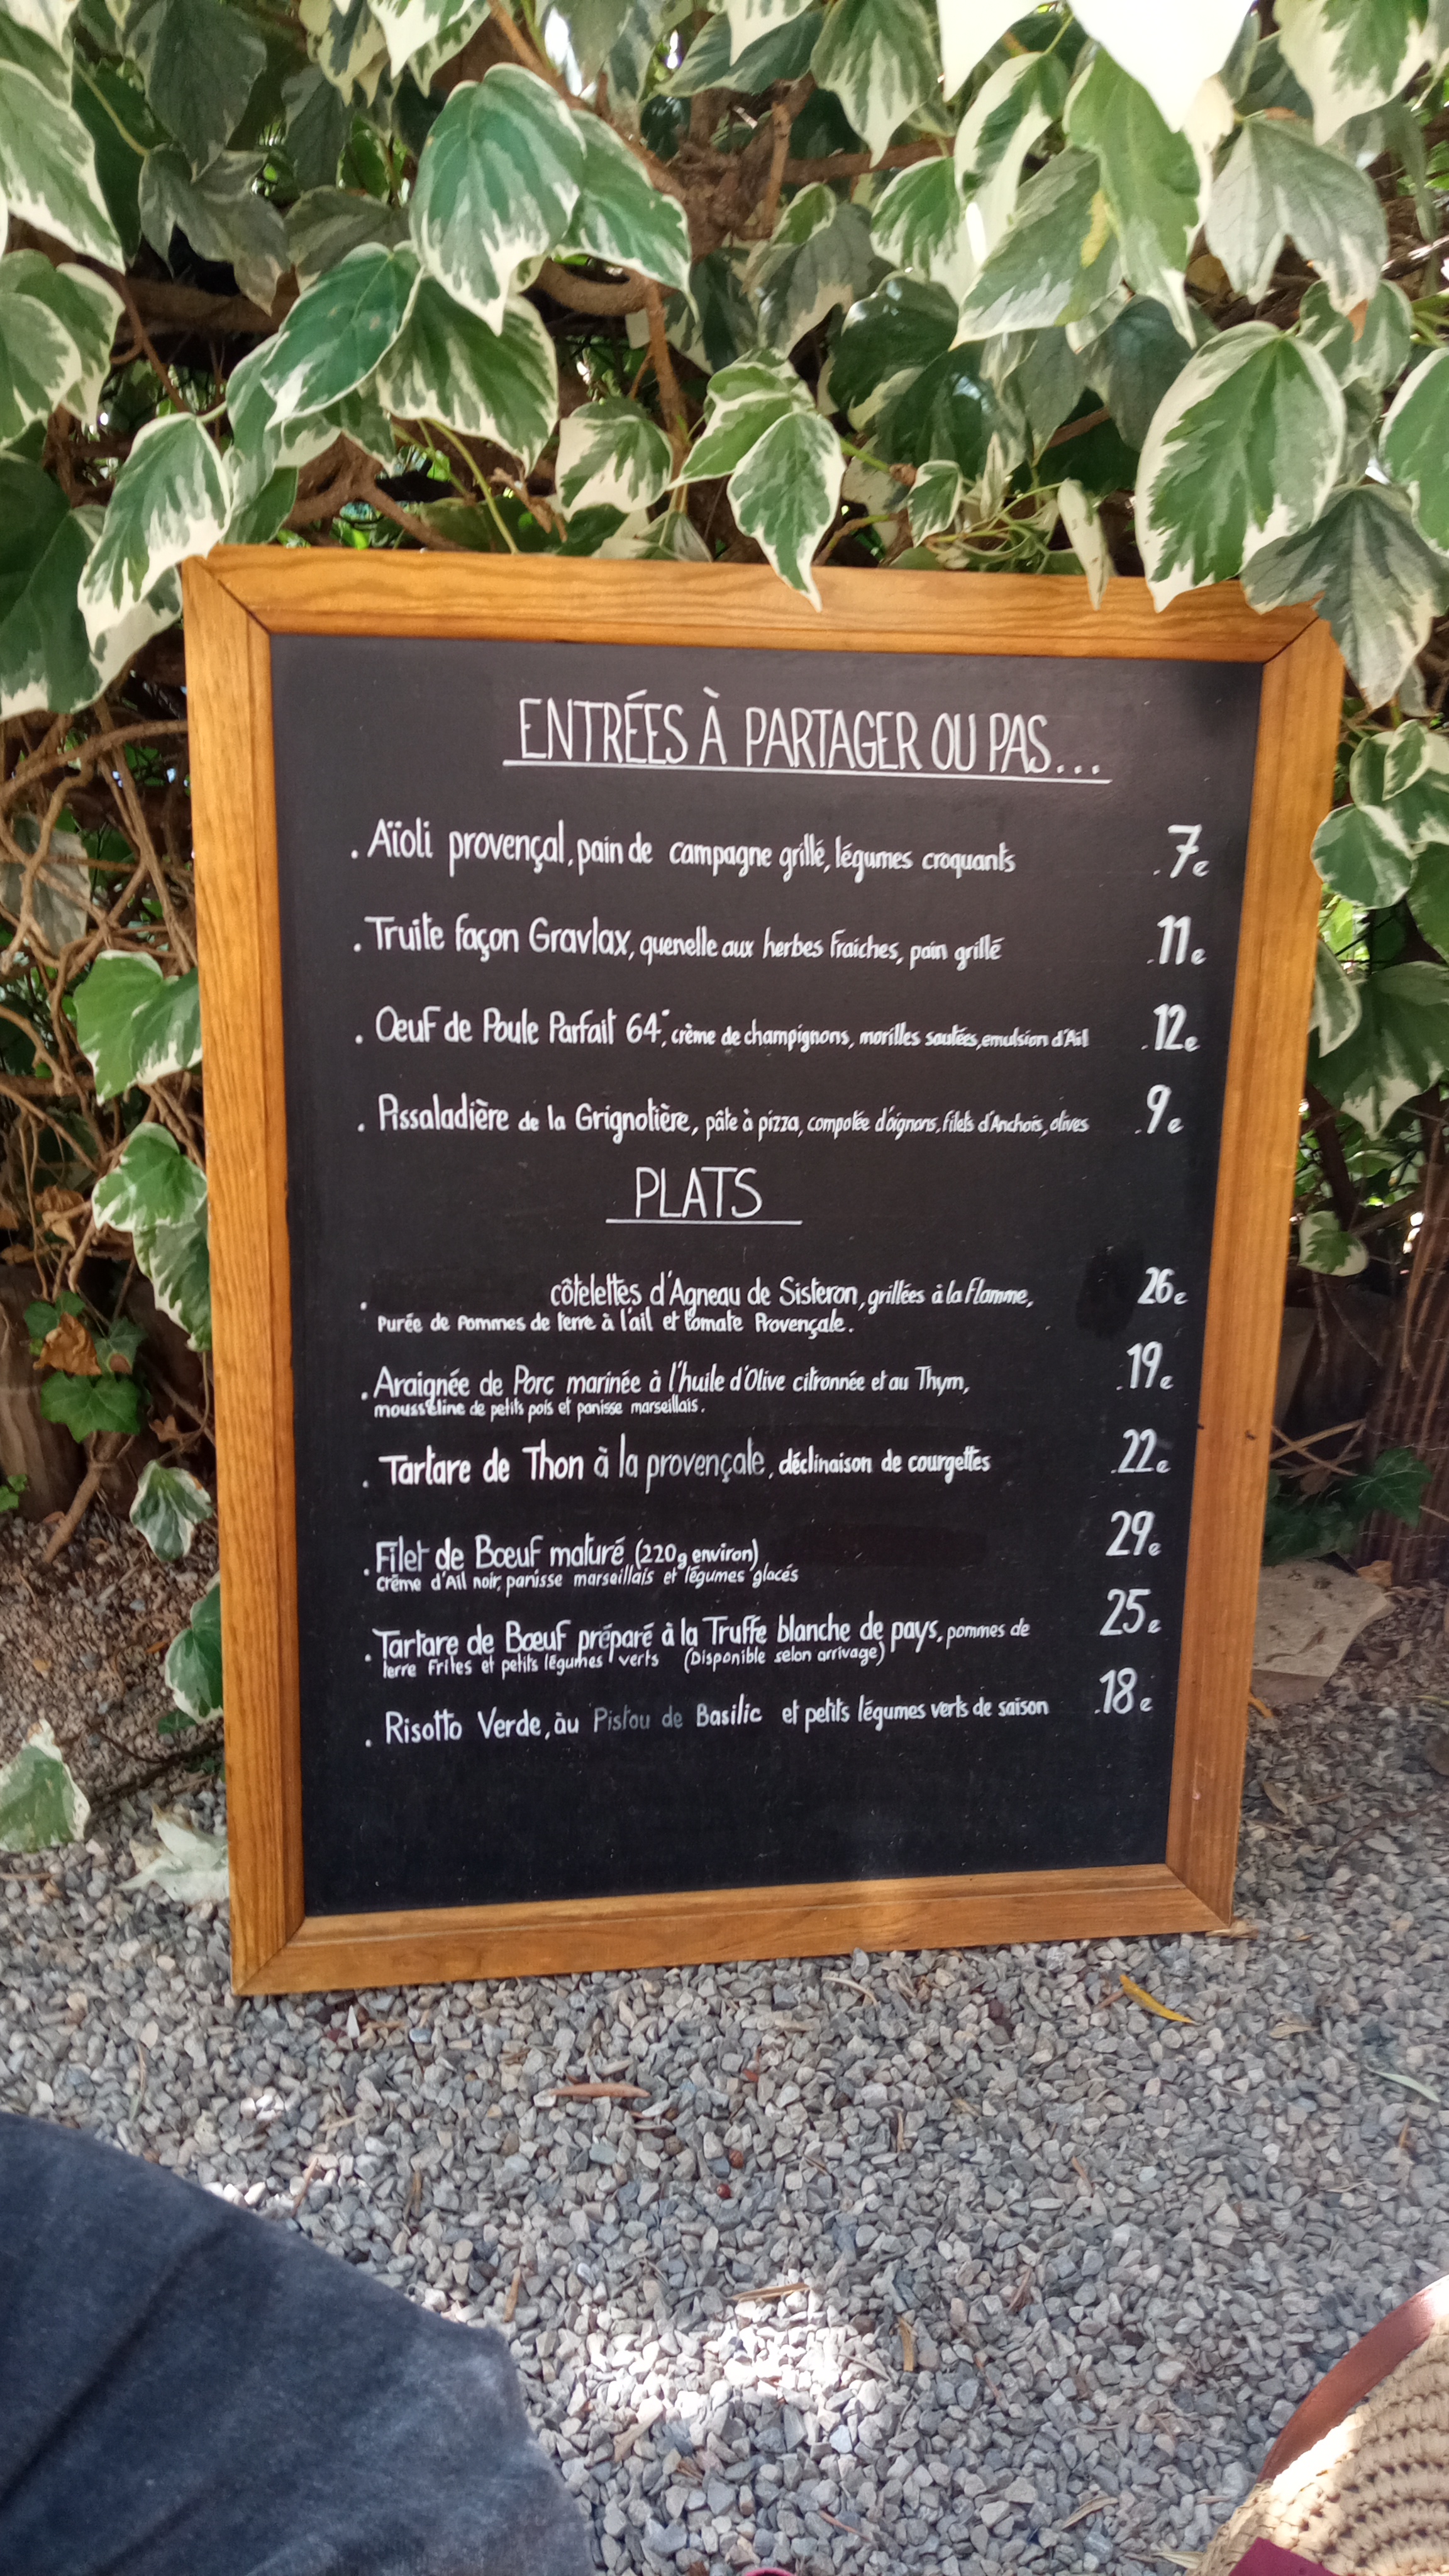 ENTRÉES À PARTAGER OU PAS...
. Aïoli provençal, pain de campagne grillé, légumes croquants 7€
. Truite façon Gravlax, quenelle aux herbes fraiches, pain grillé 11€
. Oeuf de Poule Parfait 64°, crème de champignons, morilles sautées, emulsion d'Ail 12€
. Pissaladière de la Grignotière, pâte à pizza, compotée d'oignons, filets d'Anchois, olives 9€
PLATS
. côtelettes d'Agneau de Sisteron, grillées à la flamme, 26€
Purée de Pommes de terre à l'ail et tomate Provençale.
. Araignée de Porc marinée à l'huile d'Olive citronnée et au Thym, 19€
mousseline de petits pois et panisse marseillais.
. Tartare de Thon à la provençale, déclinaison de courgettes 22€
. Filet de Bœuf maturé (220g environ) 29€
crème d'Ail noir, panisse marseillais et légumes glacés
. Tartare de Bœuf préparé à la Truffe blanche de pays, pommes de 25€
terre Frites et petits légumes verts (Disponible selon arrivage)
. Risotto Verde, au Pistou de Basilic et petits légumes verts de saison 18€